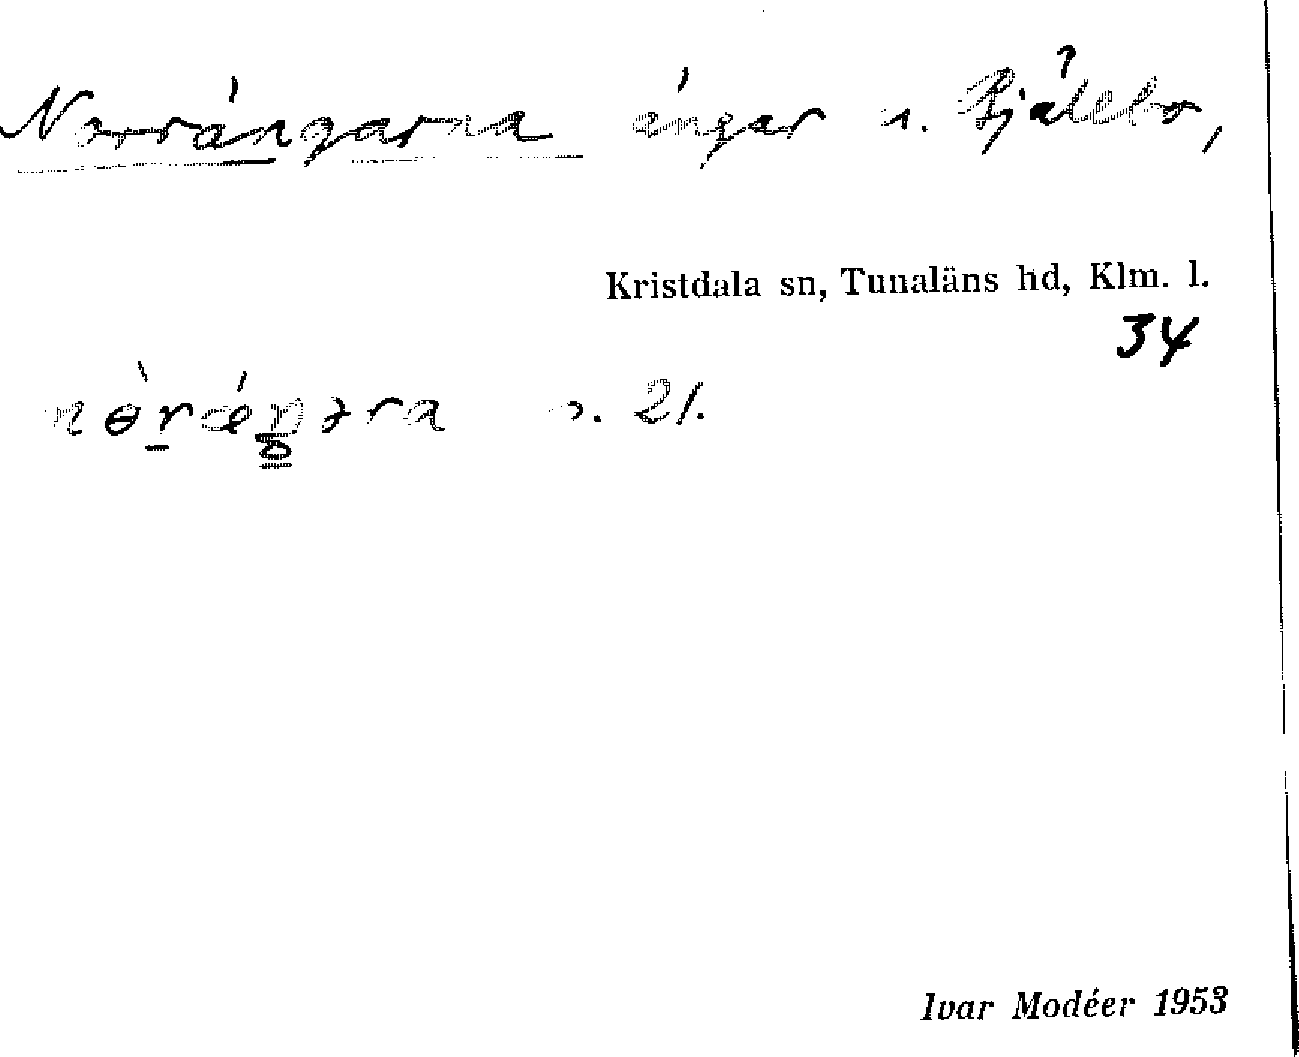 Norrängarna ängar n. Bjälebo,
Kristdala sn, Tunaläns hd, Klm. l.
34
s. 21.
Ivar Modéer 1953